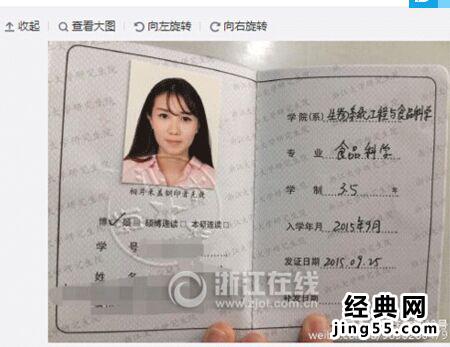 收起 查看大图 向左旋转 向右旋转
相片未盖钢印者无效
博 硕 硕博连读 本硕连读
学 号
姓 名
学院(系) 生物系统工程与食品科学
专 业 食品科学
学 制 3.5 年
入学年月 2015年9月
发证日期 2015.09.25
补发日期
浙江在线
www.zjol.com.cn
经典网
jing55.com